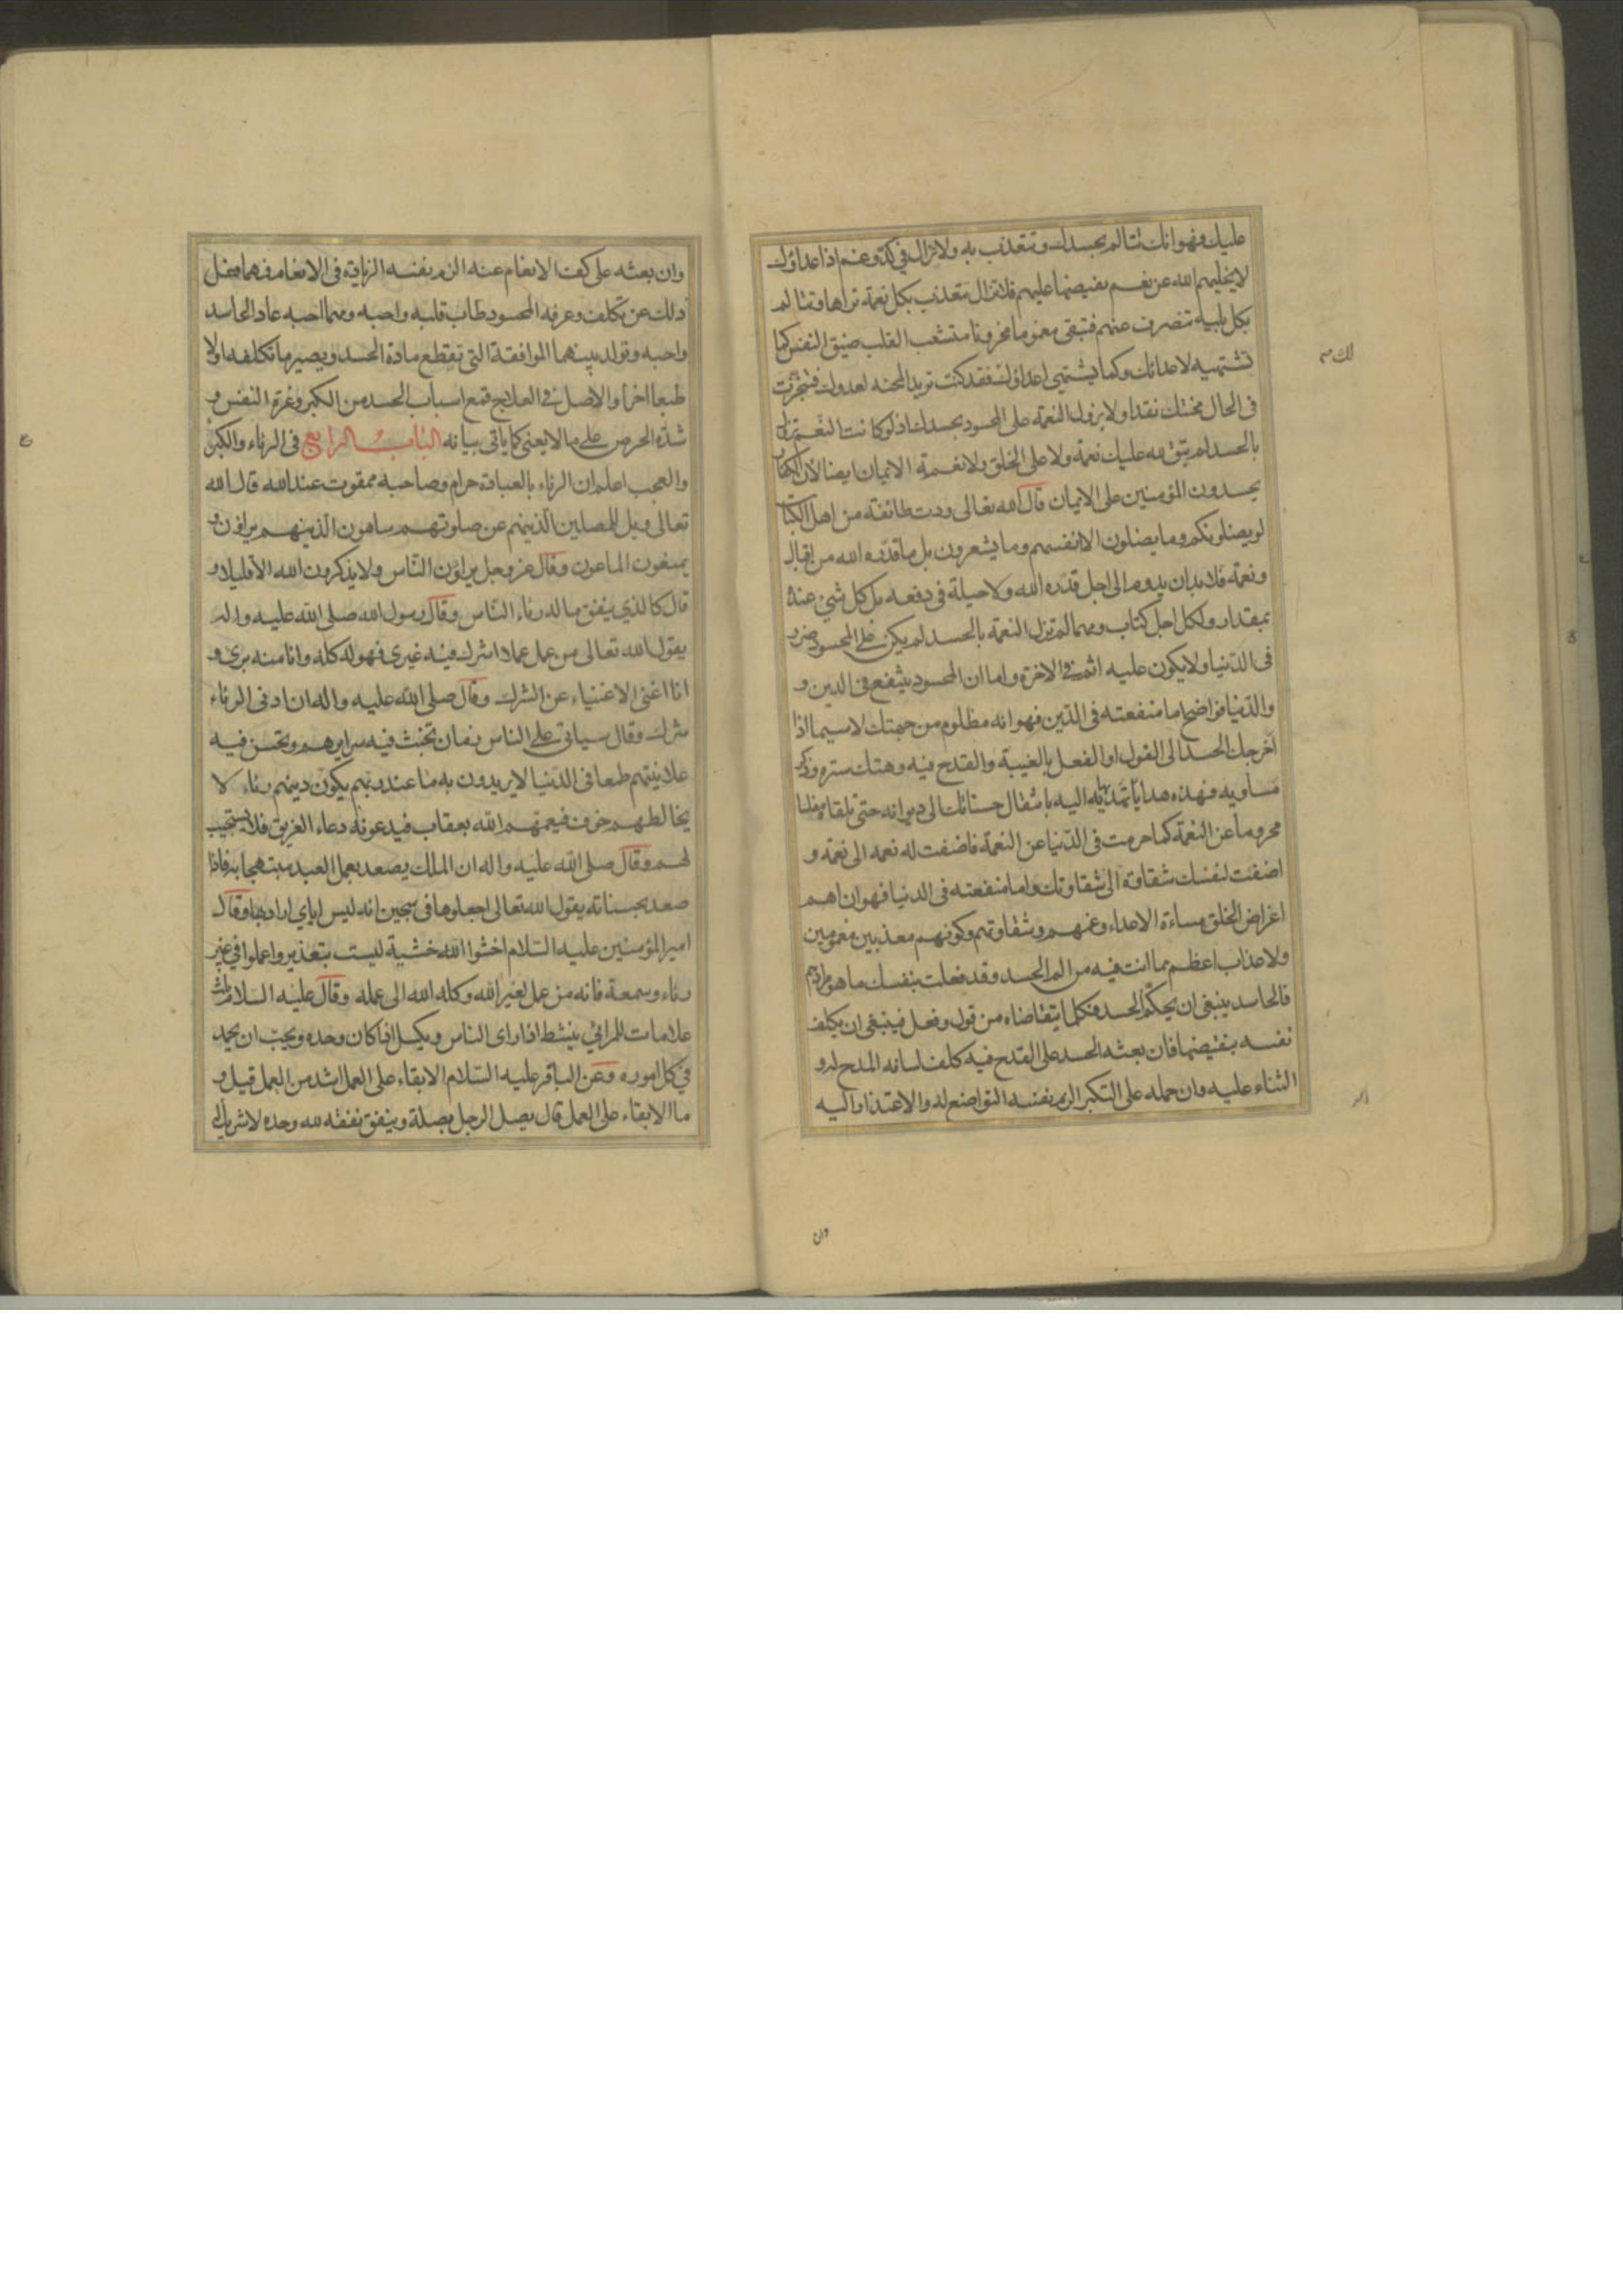 عليك فهو انك تتالم بحسدك وتتعذب به ولا تزال في كد وغم اذ اعداؤك
لا يخليهم الله عن نعم يفيضها عليهم فلا تزال تتعذب بكل نعمة تراها وتتالم
بكل بلية تنصرف عنهم فتبقى مغموما محزونا متشعب القلب ضيق النفس كما
تشتهيه لاعدائك وكما يشتهي اعداؤك لك فقد كنت تريد المحنه لعدوك فتنجزت
فى الحال محنتك نقدا ولا يزول النعمة على المحسود بحسدك اذ لو كانت النعم تزول
بالحسد لم يبق لله عليك نعمة ولا على الخلق ولا نعمة الايمان ايضا لان الكفار
يحسدون المؤمنين على الايمان قال الله تعالى ودت طائفة من اهل الكتاب
لو يضلونكم وما يضلون الا انفسهم وما يشعرون بل ما قدره الله من اقبال
ونعمة فلا بد ان يدوم الى اجل قدره الله ولا حيلة فى دفعه بل كل شئ عنده
بمقدار ولكل اجل كتاب ومهما لم تزل النعمة بالحسد لم يكن على المحسود ضرر
فى الدنيا ولا يكون عليه اثم في الاخرة واما ان المحسود ينتفع فى الدين و
والدنيا فواضح اما منفعته فى الدين فهو انه مظلوم من جهتك لا سيما اذا
اخرجك الحسد الى القول او الفعل بالغيبة والقدح فيه وهتك ستره وذكر
مساويه فهذه هدايا تهديها اليه بانتقال حسناتك الى ديوانه حتى تلقاه مفلسا
محروما عن النعمة كما حرمت فى الدنيا عن النعمة فاضفت له نعمه الى نعمة و
اضفت لنفسك شقاوة الى شقاوتك واما منفعته فى الدنيا فهو ان اهم
اغراض الخلق مساءة الاعداء وغمهم وشقاوتهم وكونهم معذبين مغمومين
ولا عذاب اعظم مما انت فيه من الم الحسد وقد فعلت بنفسك ما هو مرادهم
فالحاسد ينبغى ان يحكم الحسد فكلما يتقاضاه من قول وفعل فينبغى ان يكلف
نفسه بنقيضها فان بعثه الحسد على القدح فيه كلف لسانه المدح له و
الثناء عليه وان حمله على التكبر الزم نفسه التواضع له والاعتذار اليه
وان
وان بعثه على كف الانعام عنه الزم نفسه الزيادة فى الانعام فمهما فعل
ذلك عن تكلف وعرفه المحسود طاب قلبه واحبه ومهما احبه عاد الحاسد
واحبه وتولد بينهما الموافقة التي تقطع مادة الحسد ويصير ما تكلفه اولا
طبعا اخرا والاصل فى العلاج قمع اسباب الحسد من الكبر وعزة النفس و
شدة الحرص على ما لا يعني كما ياتى بيانه الباب الرابع فى الرئاء والكبر
والعجب اعلم ان الرئاء بالعبادة حرام وصاحبه ممقوت عند الله قال الله
تعالى ويل للمصلين الذينهم عن صلوتهم ساهون الذينهم يراؤن و
يمنعون الماعون وقال عز وجل يراؤن الناس ولا يذكرون الله الا قليلا و
قال كالذي ينفق ماله رئاء الناس وقال رسول الله صلى الله عليه واله
يقول الله تعالى من عمل عملا اشرك فيه غيرى فهو له كله وانا منه برئ و
انا اغنى الاغنياء عن الشرك وقال صلى الله عليه واله ان ادنى الرئاء
شرك وقال سياتى على الناس زمان تخبث فيه سرايرهم وتحسن فيه
علانيتهم طمعا فى الدنيا لا يريدون به ما عند ربهم يكون دينهم رئاء لا
يخالطهم خوف فيعمهم الله بعقاب فيدعونه دعاء الغريق فلا يستجيب
لهم وقال صلى الله عليه واله ان الملك يصعد بعمل العبد مبتهجا به فاذا
صعد بحسناته يقول الله تعالى اجعلوها فى سجين انه ليس اياي اراد بها وقال
امير المؤمنين عليه السلام اخشوا الله خشية ليست بتعذير واعملوا في غير
رئاء وسمعة فانه من عمل لغير الله وكله الله الى عمله وقال عليه السلام ثلث
علامات للمرائي ينشط اذا راى الناس ويكسل اذا كان وحده ويحب ان يحمد
في كل اموره وعن الباقر عليه السلام الابقاء على العمل اشد من العمل قيل و
ما الابقاء على العمل قال يصل الرجل بصلة وينفق نفقة لله وحده لا شريك